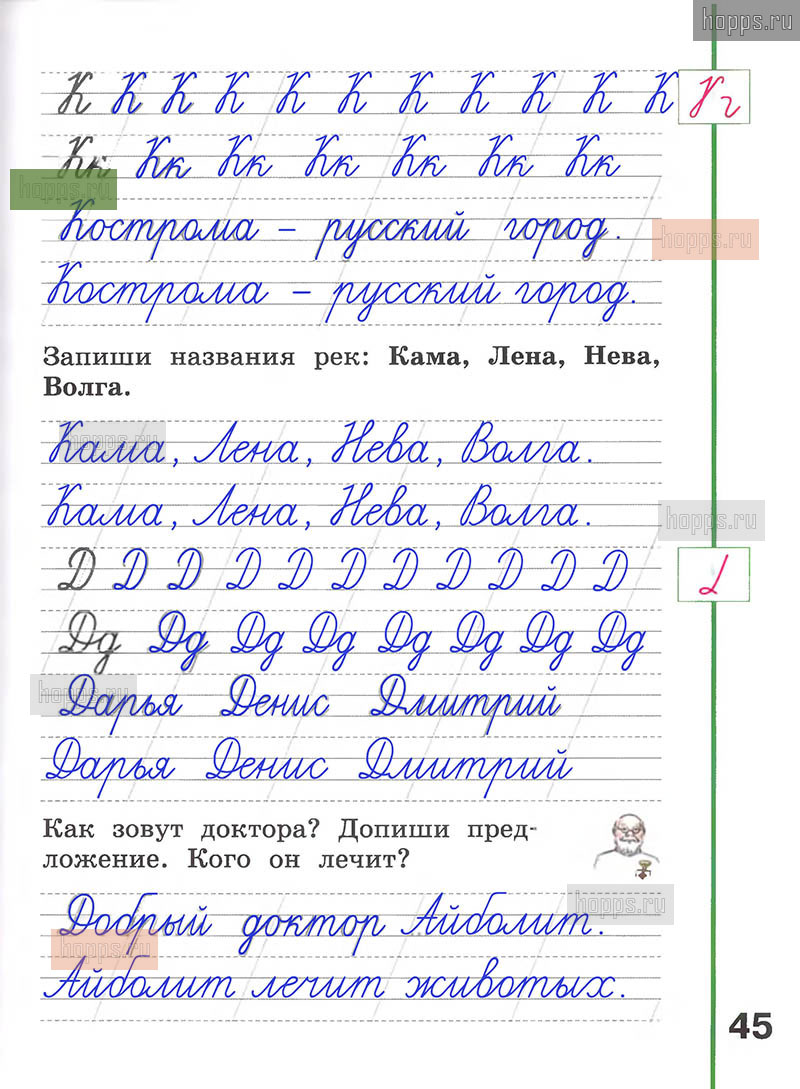 hopps.ru
К К К К К К К К К К К
Кк Кк Кк Кк Кк Кк Кк
hopps.ru
Кострома – русский город.
hopps.ru
Кострома – русский город.
Запиши названия рек: Кама, Лена, Нева,
Волга.
hopps.ru
Кама, Лена, Нева, Волга.
Кама, Лена, Нева, Волга.
hopps.ru
Д Д Д Д Д Д Д Д Д Д Д
Дд Дд Дд Дд Дд Дд Дд Дд
hopps.ru
Дарья Денис Дмитрий
Дарья Денис Дмитрий
Как зовут доктора? Допиши пред-
ложение. Кого он лечит?
hopps.ru
Добрый доктор Айболит.
hopps.ru
Айболит лечит животых.
45